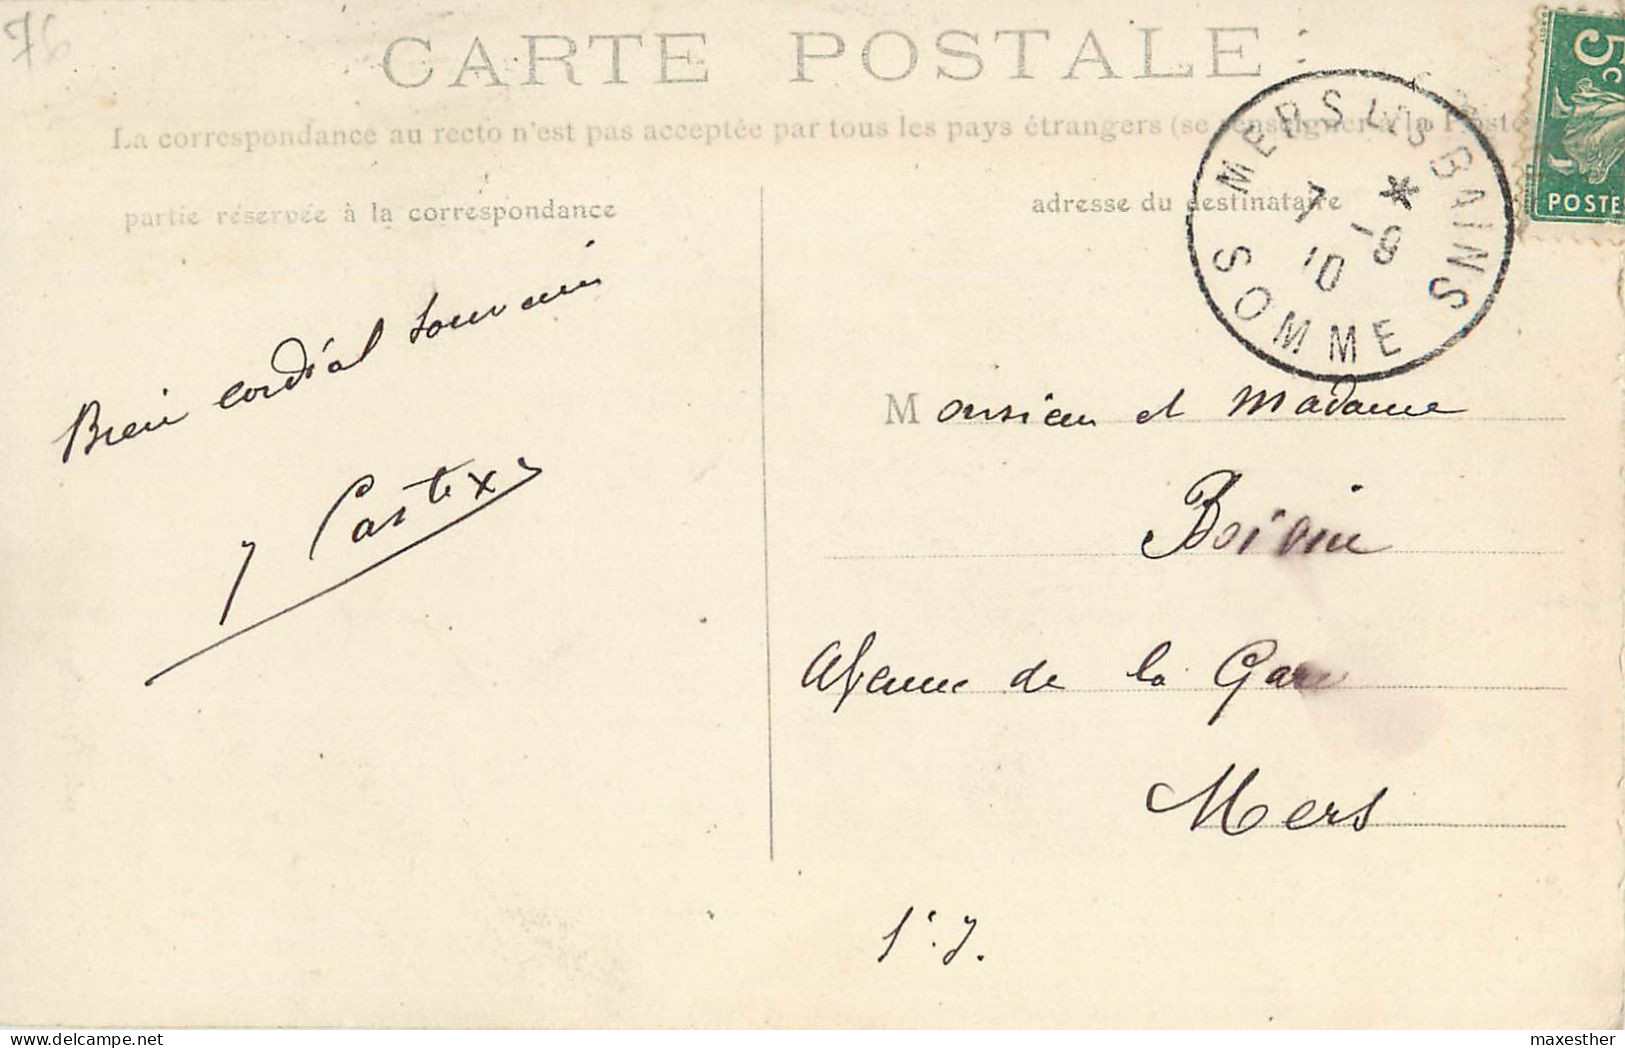 76
CARTE POSTALE
La correspondance au recto n'est pas acceptée par tous les pays étrangers (se renseigner à la Poste
partie réservée à la correspondance
adresse du destinataire
MERS LES BAINS
7 -8
10
SOMME
5c
POSTES
Bien cordial souvenir
J Castex
Monsieur et Madame
Boivin
Avenue de la Gare
Mers
maxesther